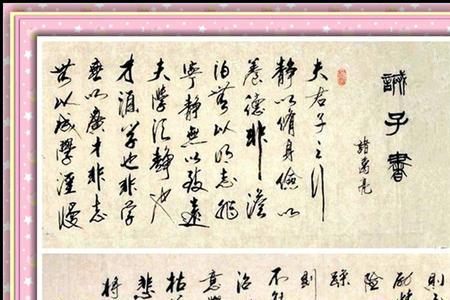 誡子書
諸葛亮
夫君子之行
靜以脩身儉以
養德非澹
泊無以明志非
寧靜無以致遠
夫學須靜也
才須學也非學
無以廣才非志
無以成學淫慢
則
險
躁
則
不
治
意
枯
悲
將